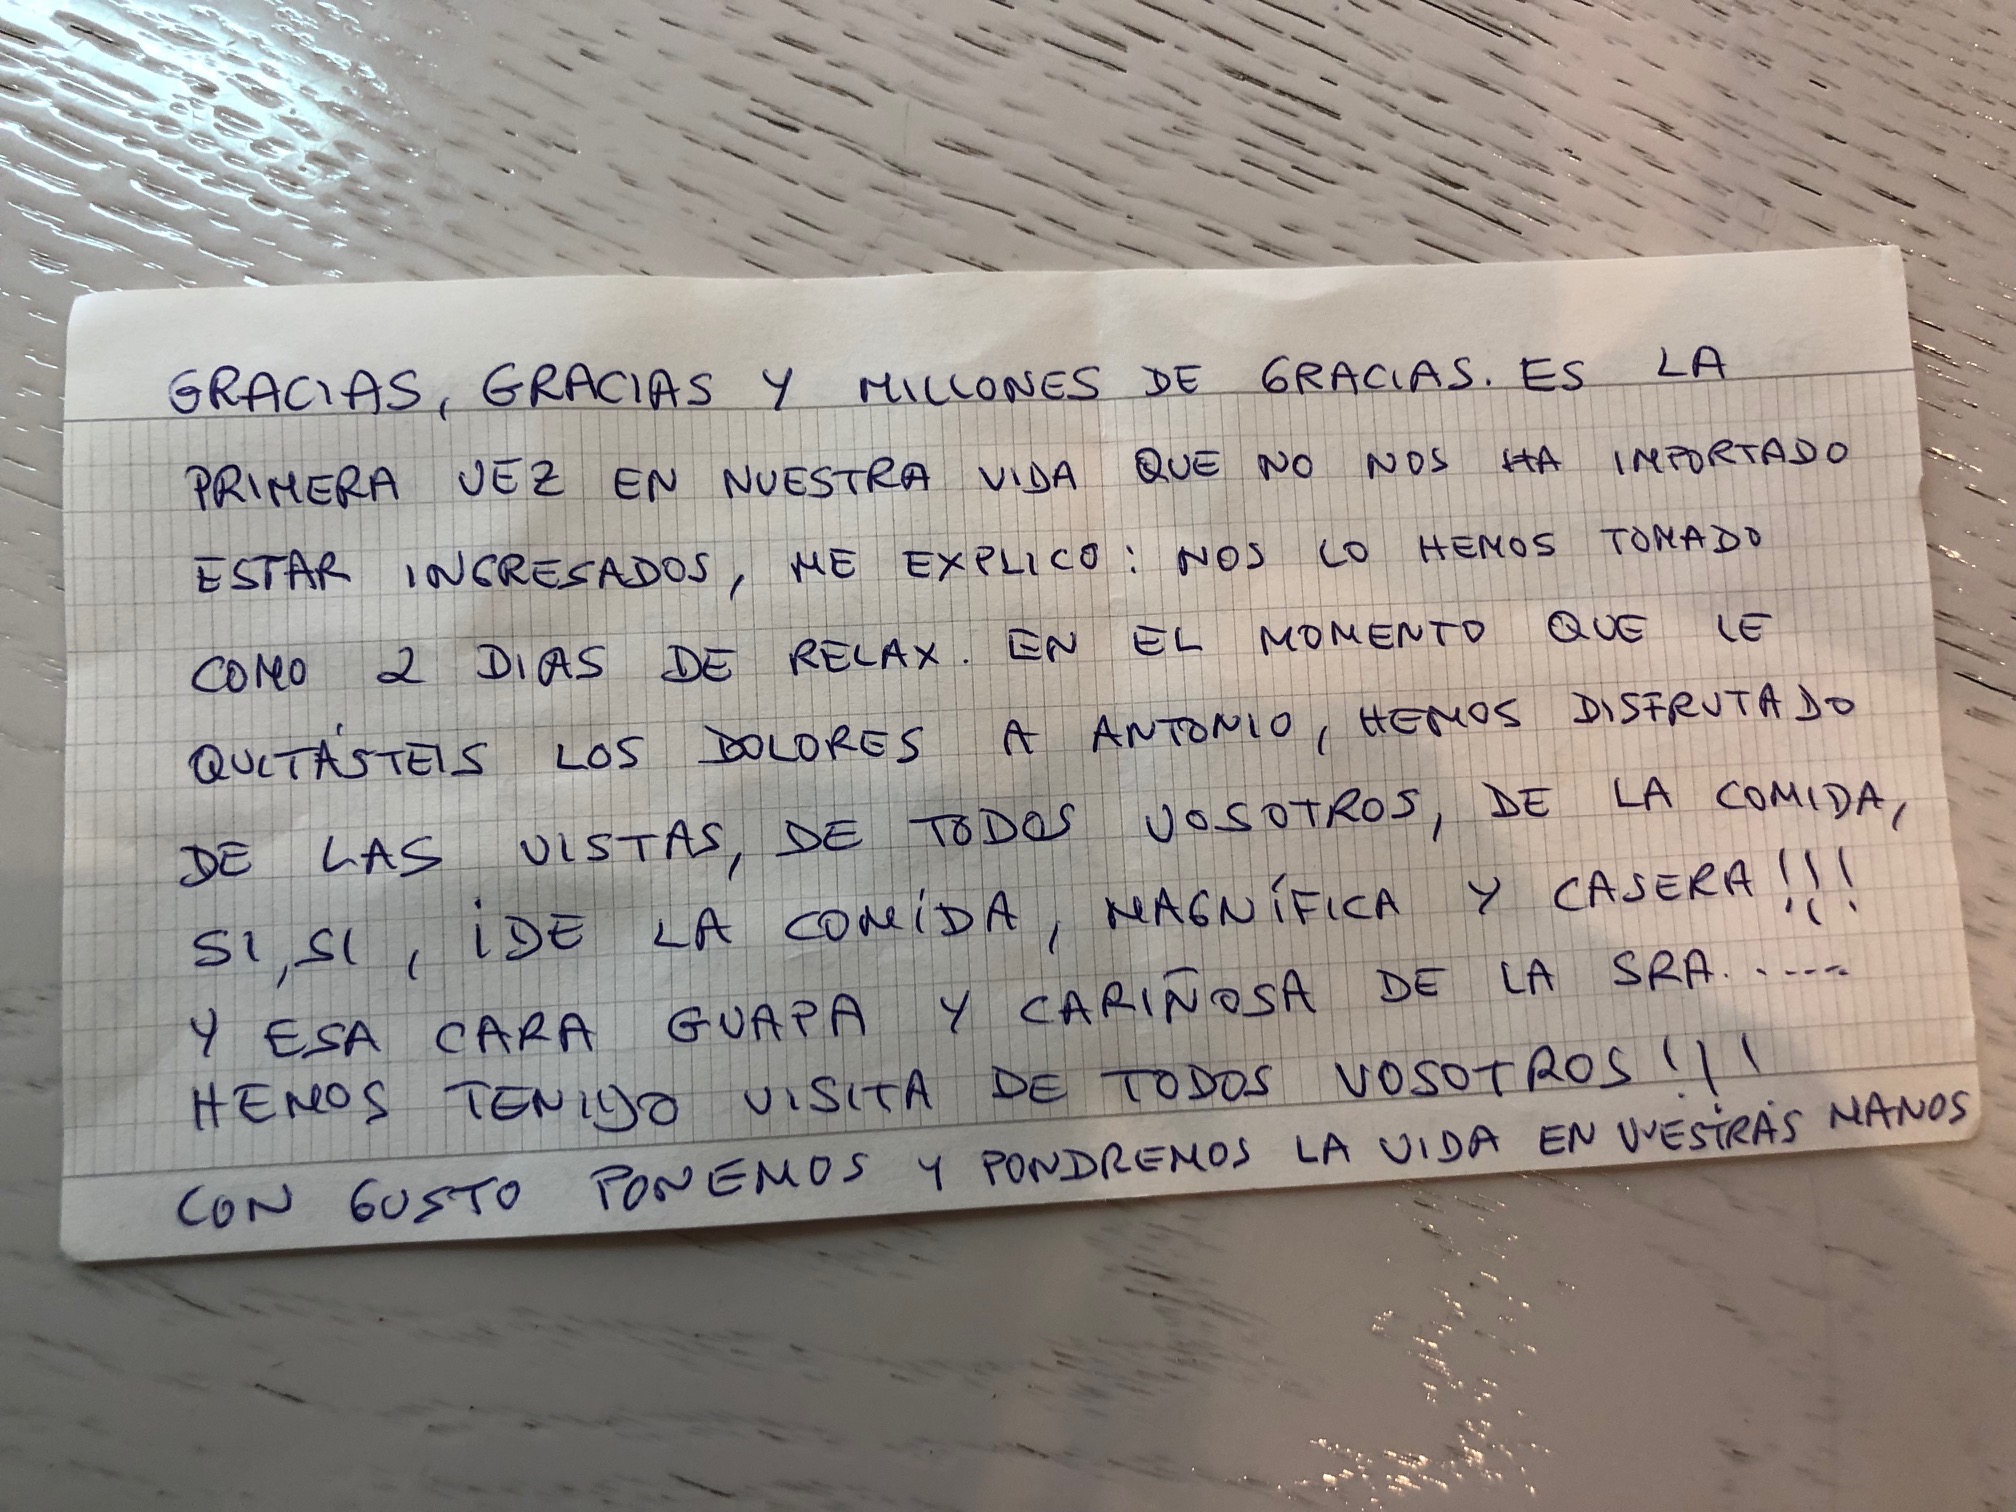 GRACIAS, GRACIAS Y MILLONES DE GRACIAS. ES LA
PRIMERA VEZ EN NUESTRA VIDA QUE NO NOS HA IMPORTADO
ESTAR INGRESADOS, ME EXPLICO: NOS LO HEMOS TOMADO
COMO 2 DIAS DE RELAX. EN EL MOMENTO QUE LE
QUITÁSTEIS LOS DOLORES A ANTONIO, HEMOS DISFRUTADO
DE LAS VISTAS, DE TODOS VOSOTROS, DE LA COMIDA,
SI, SI, ¡DE LA COMÍDA, MAGNÍFICA Y CASERA!!!
Y ESA CARA GUAPA Y CARIÑOSA DE LA SRA......
HEMOS TENIDO VISITA DE TODOS VOSOTROS!!!
CON GUSTO PONEMOS Y PONDREMOS LA VIDA EN VUESTRAS MANOS